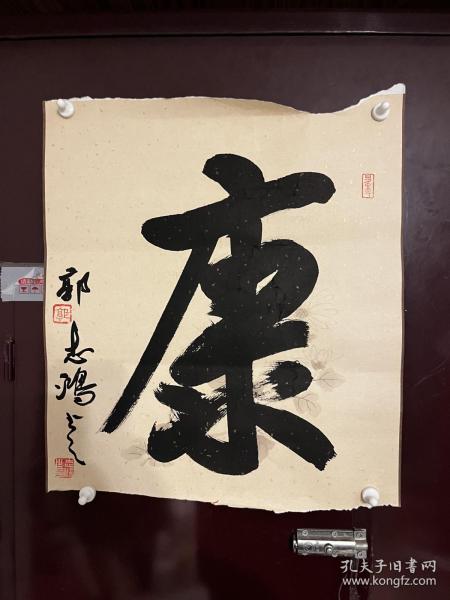 康
郭
志鸿书
孔夫子旧书网
www.kongfz.com